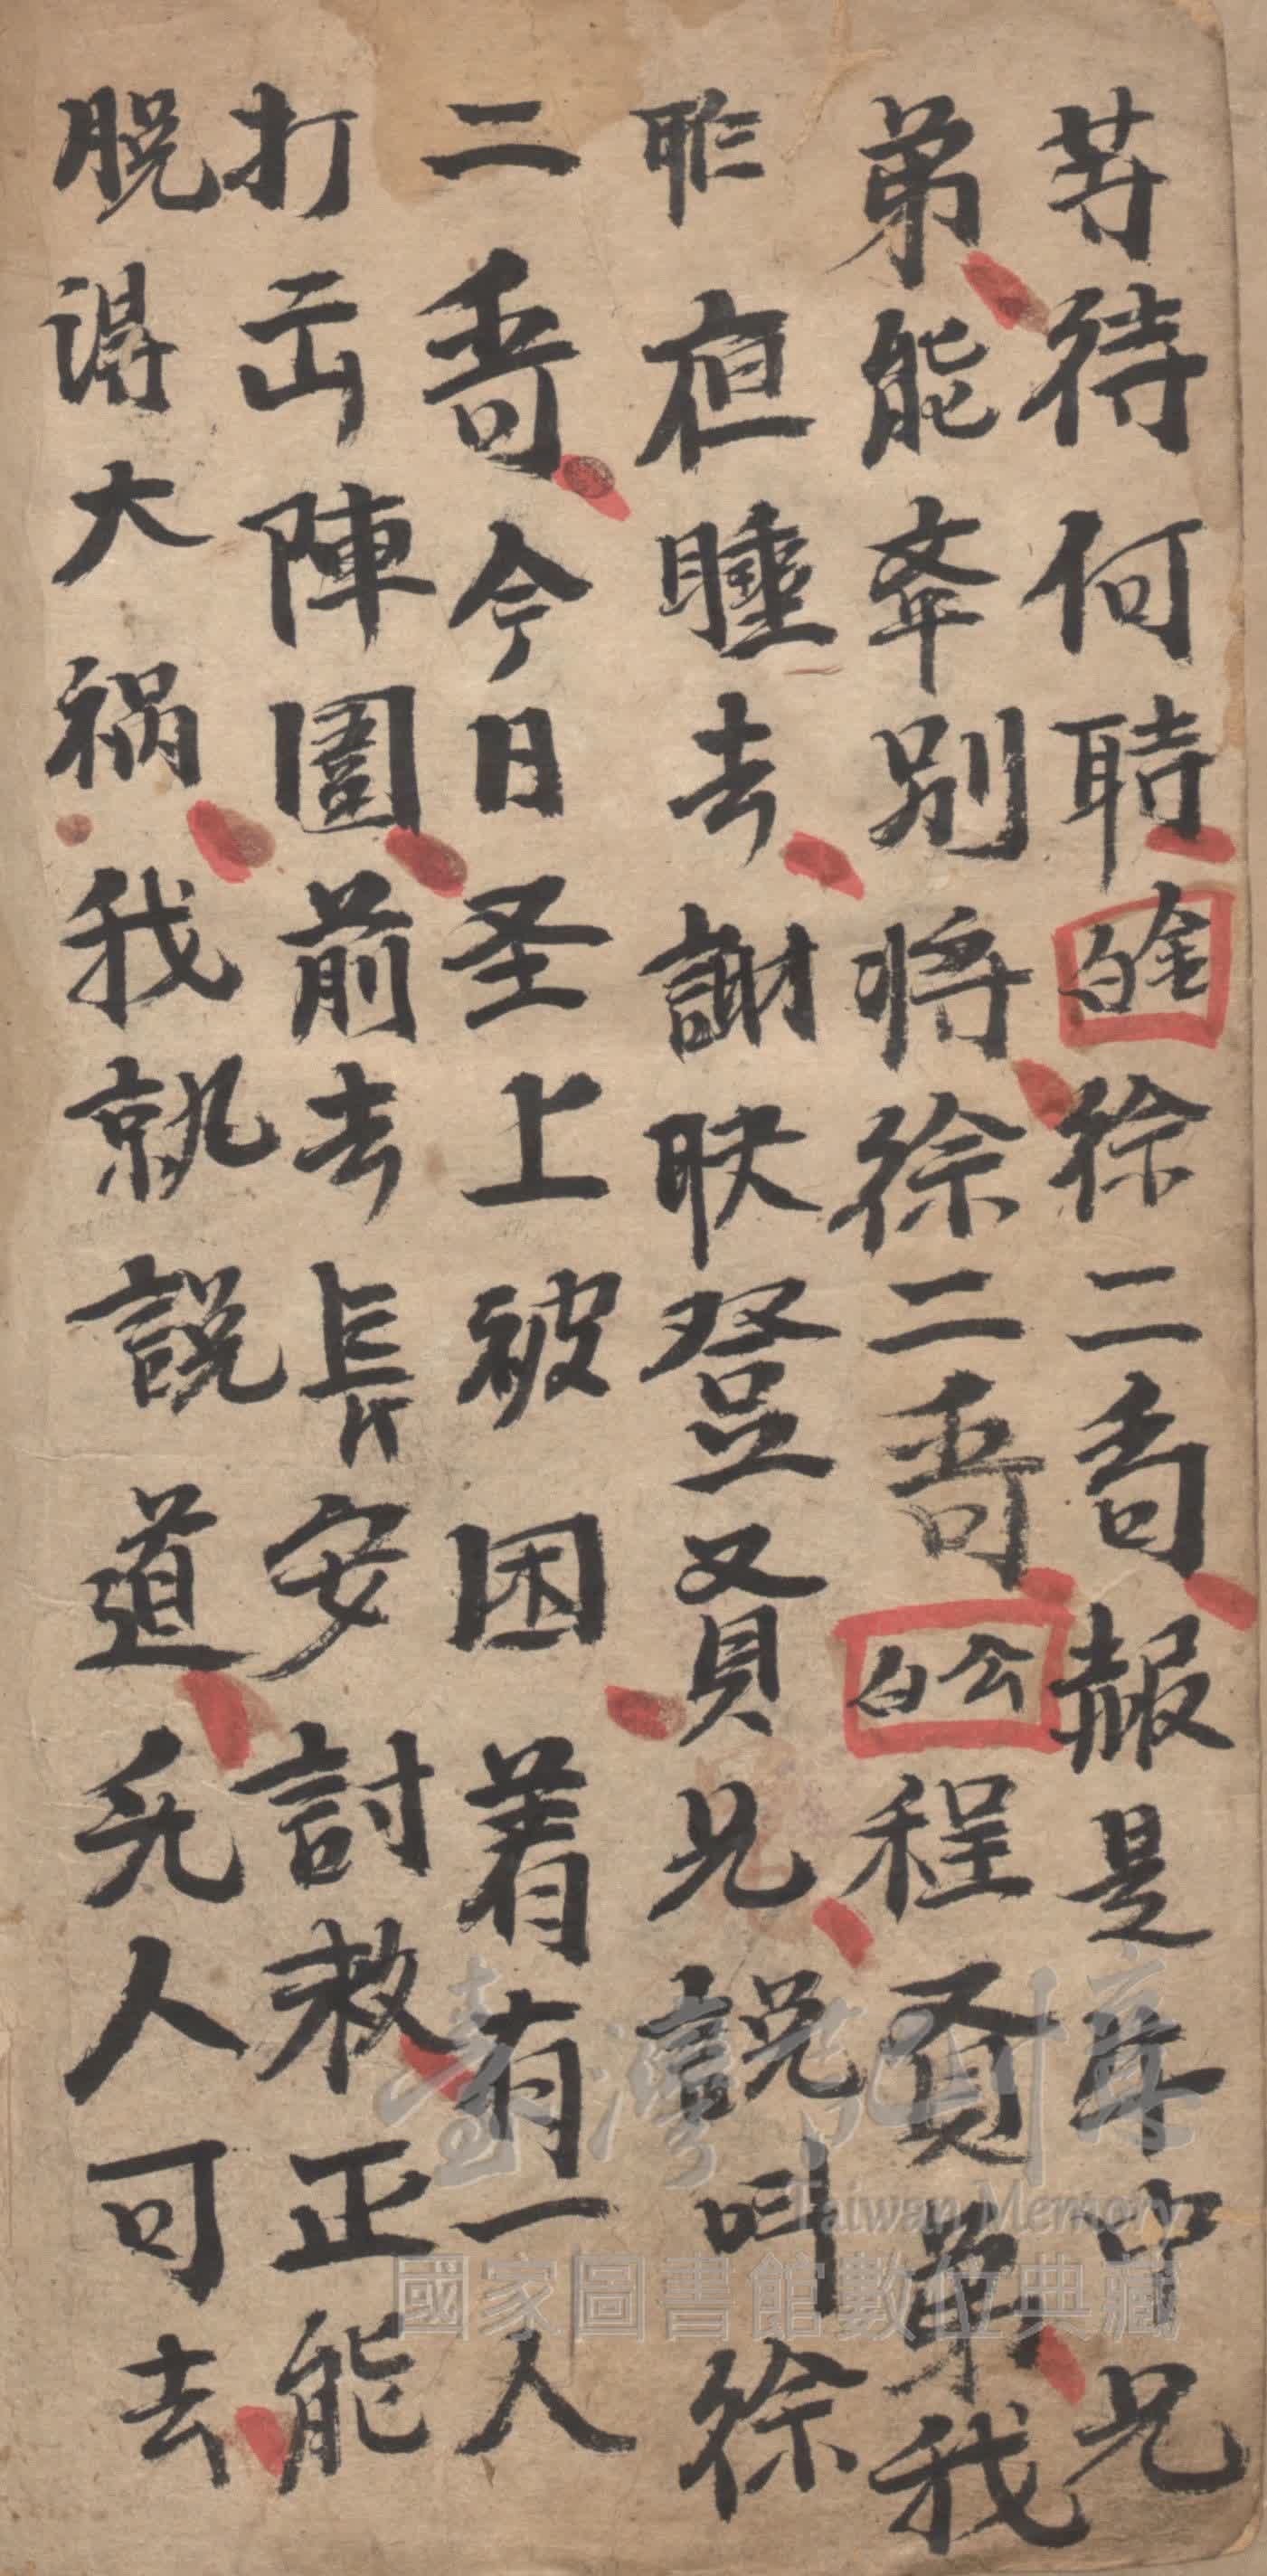 等待何時金白徐二哥報是年中兄
弟能牽別將徐二哥公白程賢弟我
昨夜睡去謝映登又賢兄說叫徐
二哥今日圣上被困著有一人
打出陣圍前去長安討救正能
脱得大祸我就說道無人可去
臺灣記憶
Taiwan Memory
國家圖書館數位典藏